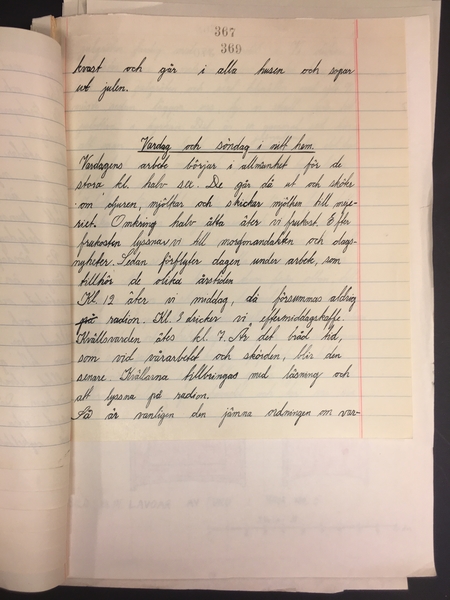 367
369
kvast och går i alla husen och sopar
ut julen.
Vardag och söndag i mitt hem.
Vardagens arbete börjar i allmänhet för de
stora kl. halv sex. De går då ut och sköter
om djuren, mjölkar och skickar mjölken till meje-
riet. Omkring halv åtta äter vi frukost. Efter
frukosten lyssnar vi till morgonandakten och dags-
nyheter. Sedan förflyter dagen under arbete, som
tillhör de olika årstiden
Kl. 12 äter vi middag, då försummas aldrig
på radion. Kl. 3 dricker vi eftermiddagskaffe.
Kvällsvarden ätes kl. 7. Är det bråd tid,
som vid vårarbetet och skörden, blir den
senare. Kvällarna tillbringas med läsning och
att lyssna på radion.
Så är vanligen den jämna ordningen om var-